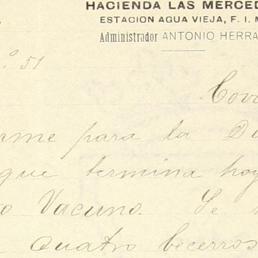 HACIENDA LAS MERCED
ESTACION AGUA VIEJA, F. I. M
Administrador ANTONIO HERRA
º 51
Cova
rme para la Do
que termina hoy
o Vacuno. Se
Cuatro becerros